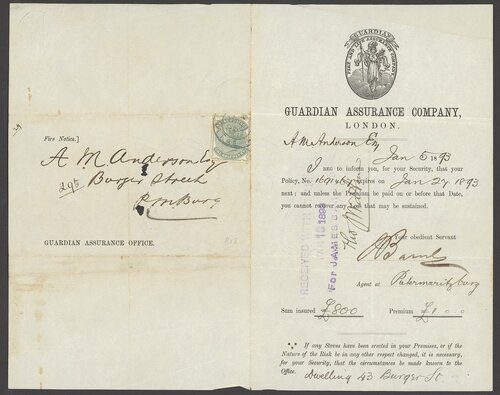 Fire Notice.]
A M. Anderson Esq
295
Burger Street
P. M. Burg
GUARDIAN ASSURANCE OFFICE.
GUARDIAN
FIRE AND LIFE ASSURANCE COMPANY
GUARDIAN ASSURANCE COMPANY,
LONDON.
A M Anderson Esq
Jan 5 1893
I beg to inform you, for your Security, that your
Policy, No. expires on Jan 27 1893
next; and unless the Premium be paid on or before that Date,
you cannot recover any that may be sustained.
RECEIVED
For JAMES
Your obedient Servant
Agent at Petermaritzburg
Sum insured £800 Premium £1
If any Stoves have been erected in your Premises, or if the
Nature of the Risk be in any other respect changed, it is necessary,
for your Security, that the circumstances be made known to the
Office.
Dwelling 43 Burger St.